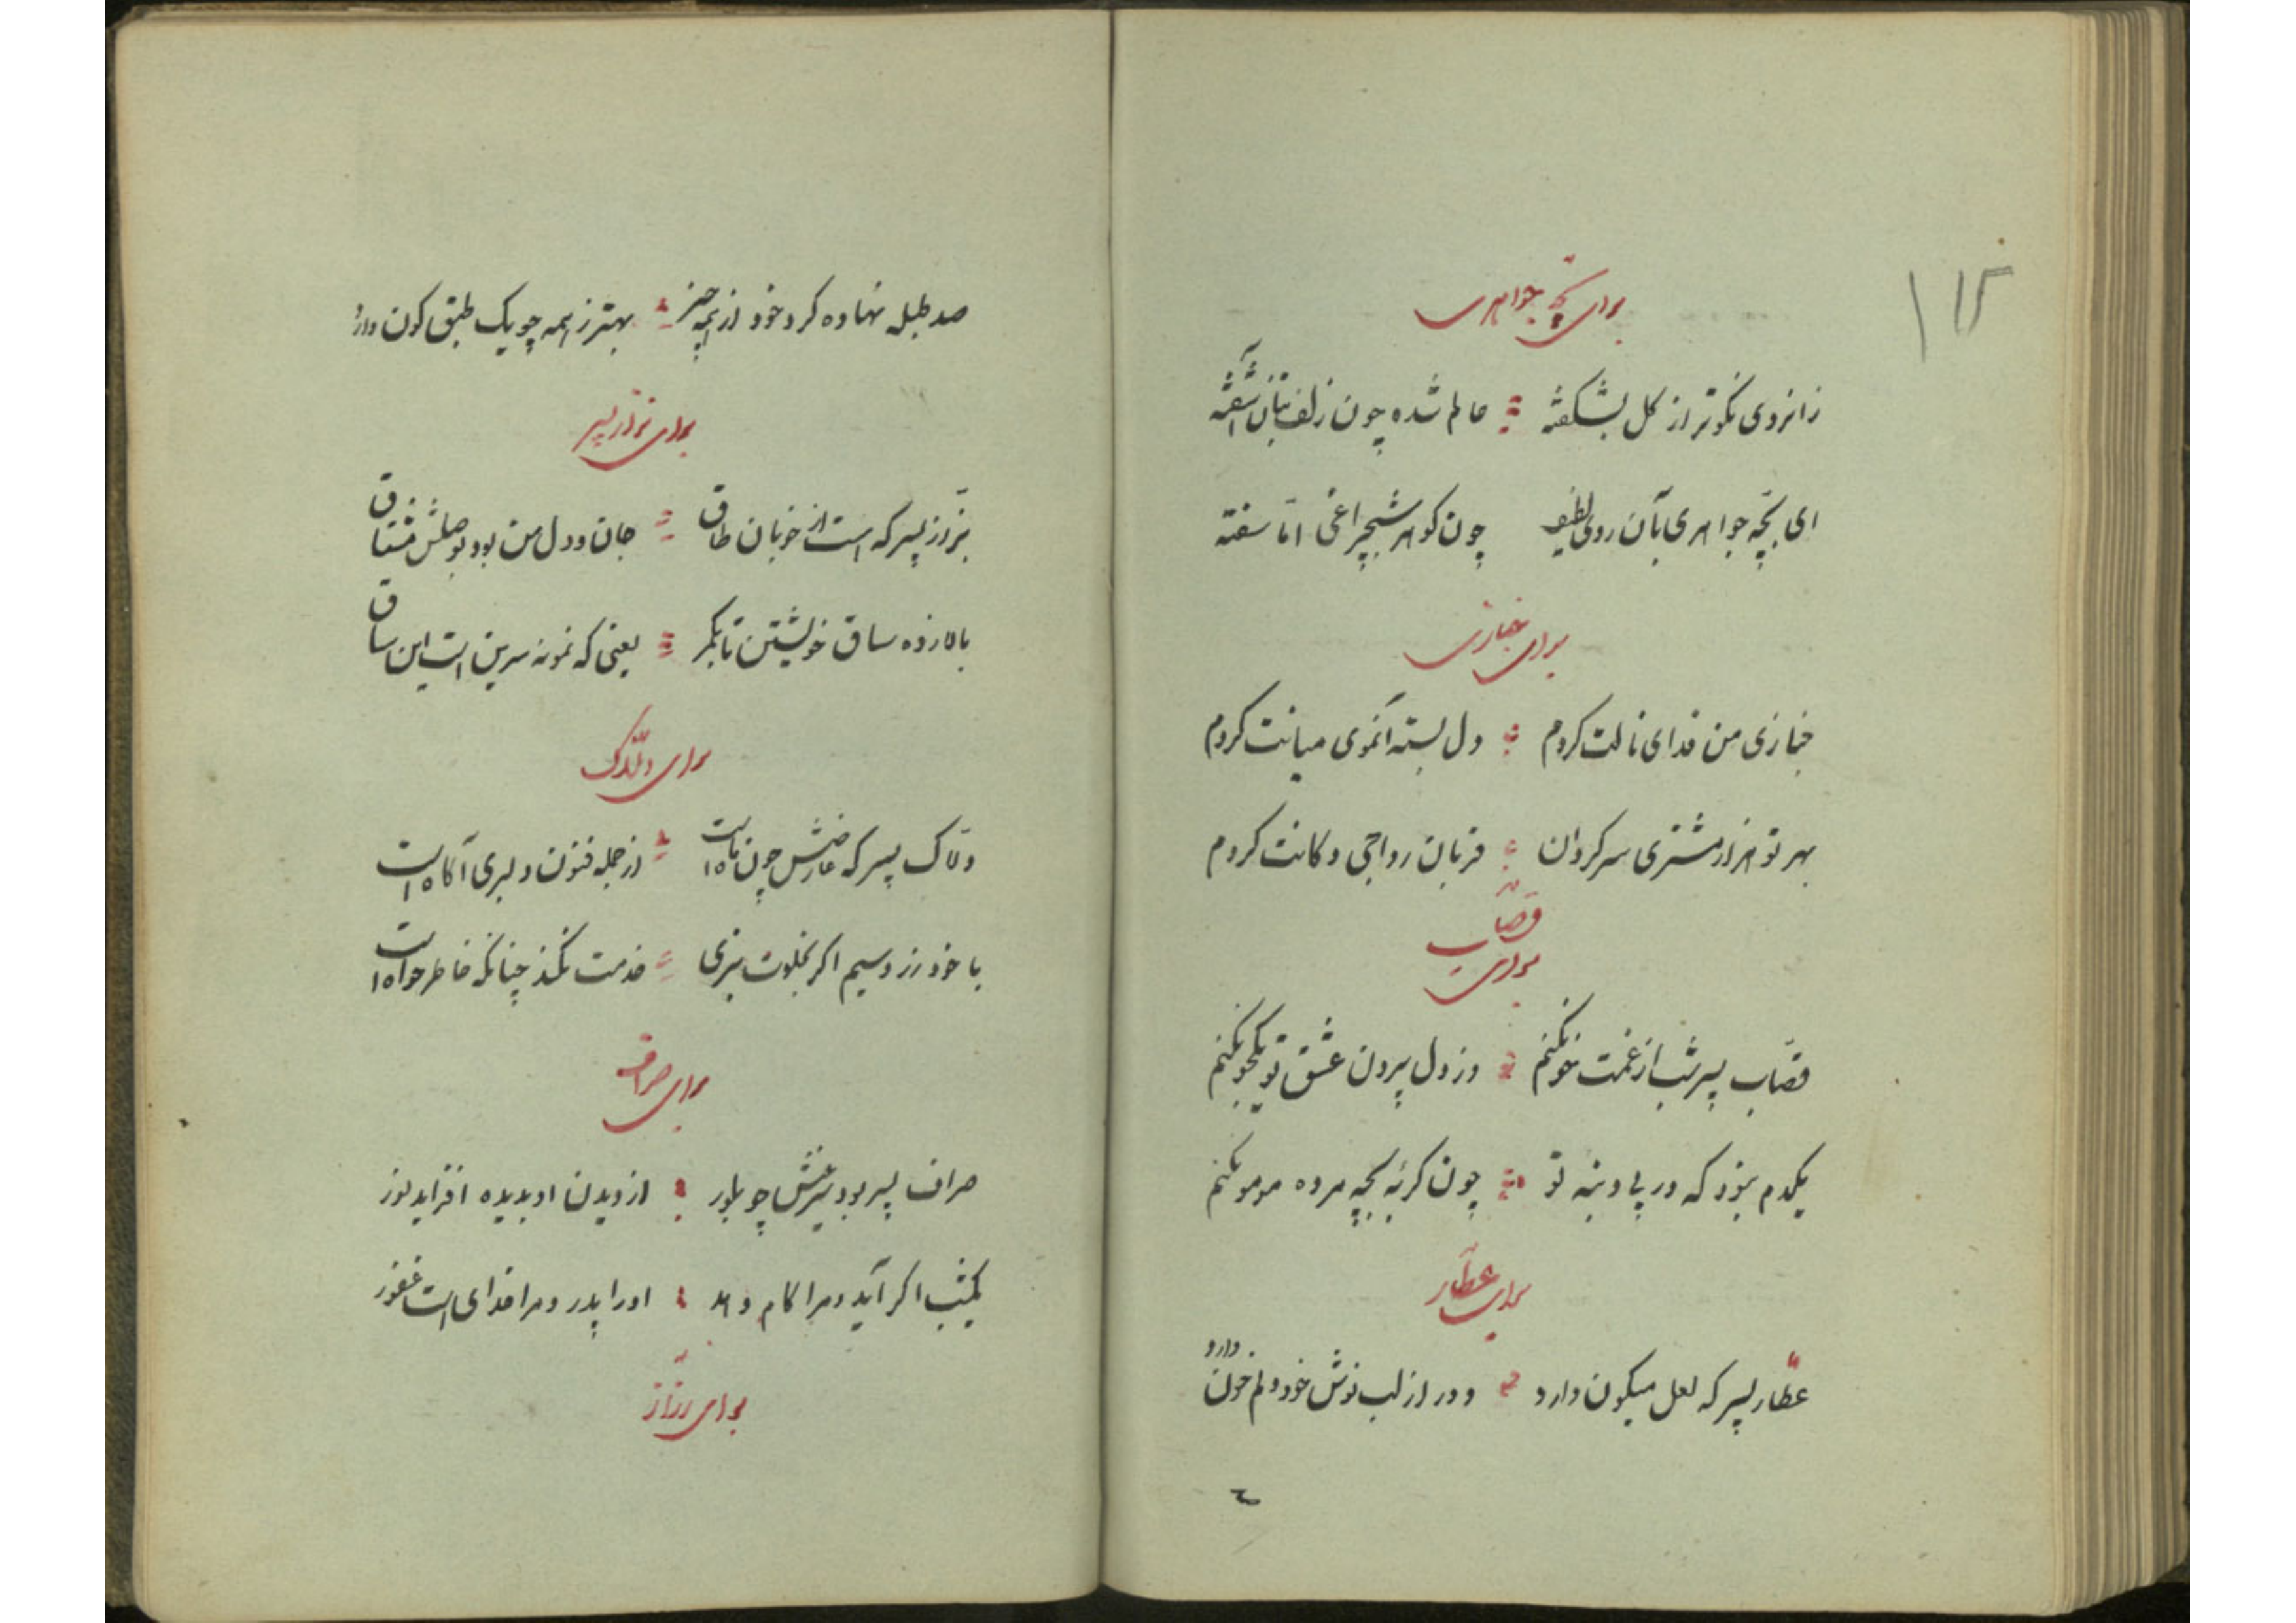 ۱۱۵
برای بچه جواهری
زانروی نکوتر از کل بشکفته عالم شده چون زلف بتان آشفته
ای بچّه جواهری بآن روی لطیف چون کوهر شبچراغی امّا سفته
برای خبازی
خبازی من فدای نانت کردم دل بسته آنموی میانت کردم
بهر تو هزار مشتری سرکردان قربان رواجی دکانت کردم
برای قصّاب
قصّاب پسر شب از غمت خو نکنم وز دل بیرون عشق تو یکجو نکنم
یکدم نبود که در پی دنبه تو چون کربه بچه مرده مومو نکنم
برای عطّار
عطّار پسر که لعل میکون دارد دور از لب نوش خود دلم خون دارد
صد طبله نهاده کرد خود از همه چیز بهتر ز همه چو یک طبق کون دارد
برای بزاز پسر
بزّاز پسر که است از خوبان طاق جان و دل من بود بوصلش مشتاق
بالا زده ساق خویشتن تا بکمر یعنی که نمونه سرین است این ساق
برای دلّاک
دلّاک پسر که عارضش چون ماه است از جمله فنون دلبری آکاه است
با خود زر و سیم اکر بخلوت ببری خدمت بکند چنانکه خاطر خواه است
برای صراف
صراف پسر بود سرینش چو بلور از دیدن او بدیده افزاید نور
یکشب اکر آید و مرا کام دهد او را پدر و مرا خدای است غفور
برای رزّاز